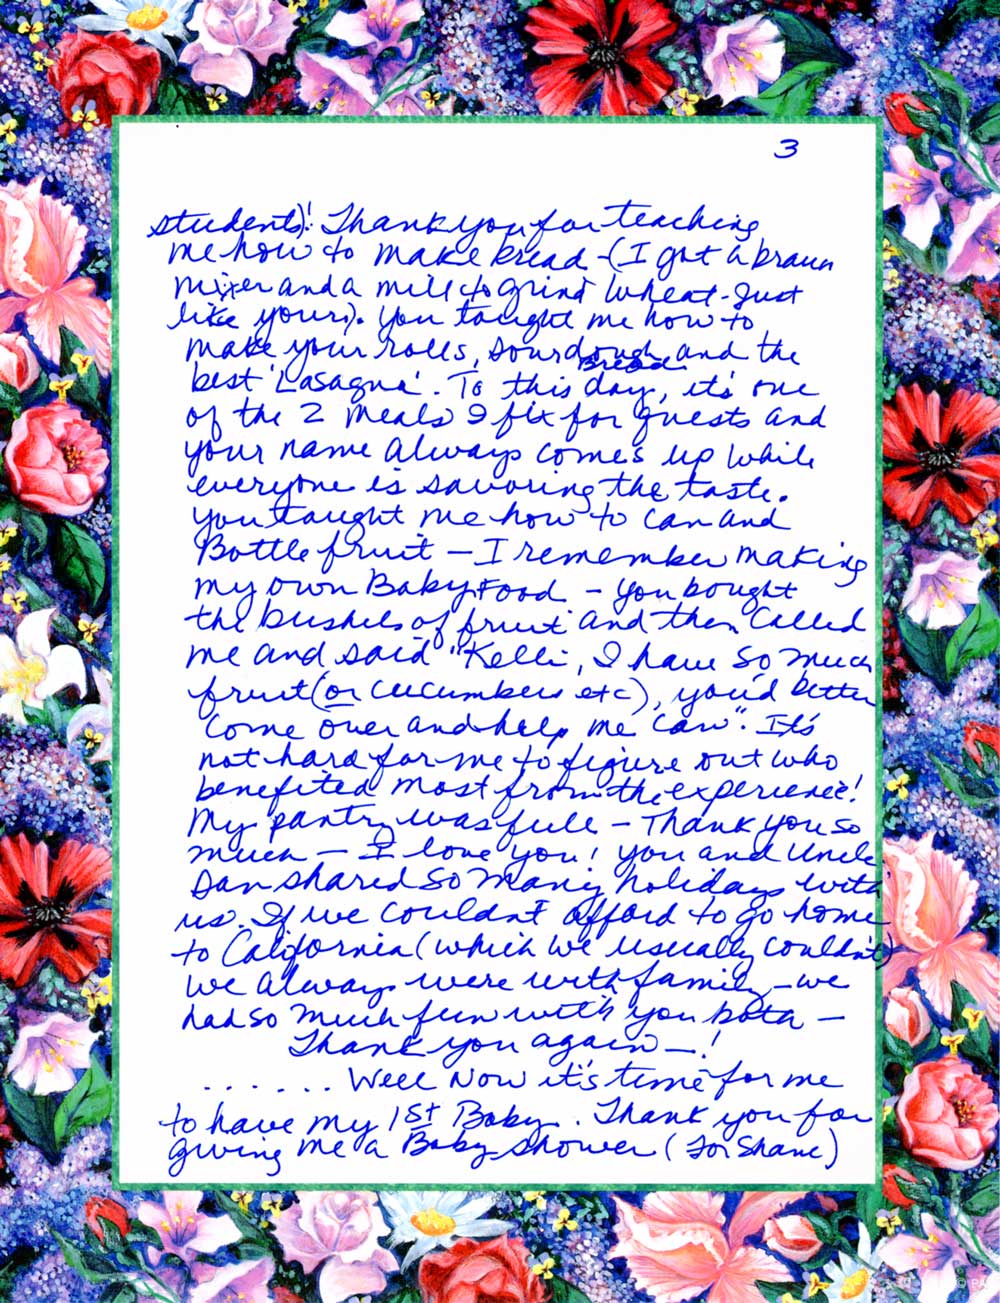 3
students)! Thank you for teaching
me how to make bread - (I got a braun
mixer and a mill to grind wheat - just
like yours). You taught me how to
make your rolls, sourdough Bread and the
best 'Lasagna'. To this day, it's one
of the 2 meals I fix for guests and
your name Always comes up while
everyone is savoring the taste.
You taught me how to can and
Bottle fruit — I remember making
my own Baby Food - You bought
the bushels of fruit and then Called
me and said "Kelli, I have so much
fruit (or cucumbers etc), you'd better
come over and help me can". It's
not hard for me to figure out who
benefited most from the experience!
My pantry was full - Thank you so
much — I love you! You and Uncle
Dan shared so many holidays with
us. If we couldn't afford to go home
to California (which we usually couldn't)
we Always were with family - we
had so much fun with you both -
Thank you again —!
. . . . . . Well Now it's time for me
to have my 1st Baby. Thank you for
giving me a Baby shower (for Shane)